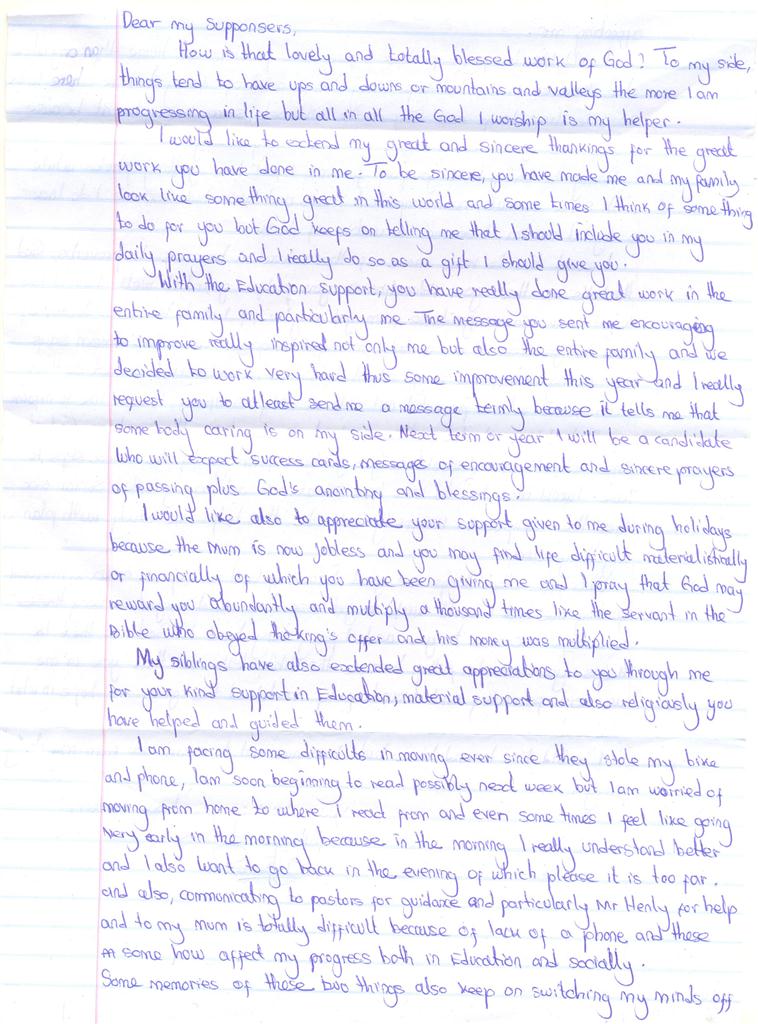 Dear my Supponsers,
How is that lovely and totally blessed work of God? To my side,
things tend to have ups and downs or mountains and valleys the more I am
progressing in life but all in all the God I worship is my helper.
I would like to extend my great and sincere thankings for the great
work you have done in me. To be sincere, you have made me and my family
look like something great in this world and some times I think of some thing
to do for you but God keeps on telling me that I should include you in my
daily prayers and I really do so as a gift I should give you.
With the Education support, you have really done great work in the
entire family and particularly me. The message you sent me encouraging
to improve really inspired not only me but also the entire family and we
decided to work very hard thus some improvement this year and I really
request you to atleast send me a message termly because it tells me that
some body caring is on my side. Next term or year I will be a candidate
who will expect success cards, messages of encouragement and sincere prayers
of passing plus God's anointing and blessings.
I would like also to appreciate your support given to me during holidays
because the mum is now jobless and you may find life difficult materialistically
or financially of which you have been giving me and I pray that God may
reward you abundantly and multiply a thousand times like the servant in the
Bible who obeyed the king's offer and his money was multiplied.
My siblings have also extended great appreciations to you through me
for your kind support in Education, material support and also religiously you
have helped and guided them.
I am facing some difficults in moving ever since they stole my bike
and phone, Iam soon beginning to read possibly next week but I am worried of
moving from home to where I read from and even some times I feel like going
very early in the morning because in the morning I really understand better
and I also want to go back in the evening of which please it is too far.
and also, communicating to pastors for guidance and particularly Mr Henly for help
and to my mum is totally difficult because of lack of a phone and these
some how affect my progress both in Education and socially.
Some memories of these two things also keep on switching my minds off